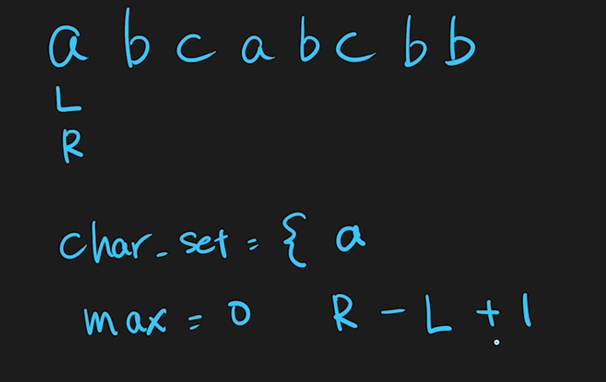 a b c a b c b b
L
R
char_set = { a
max = 0 R - L + 1